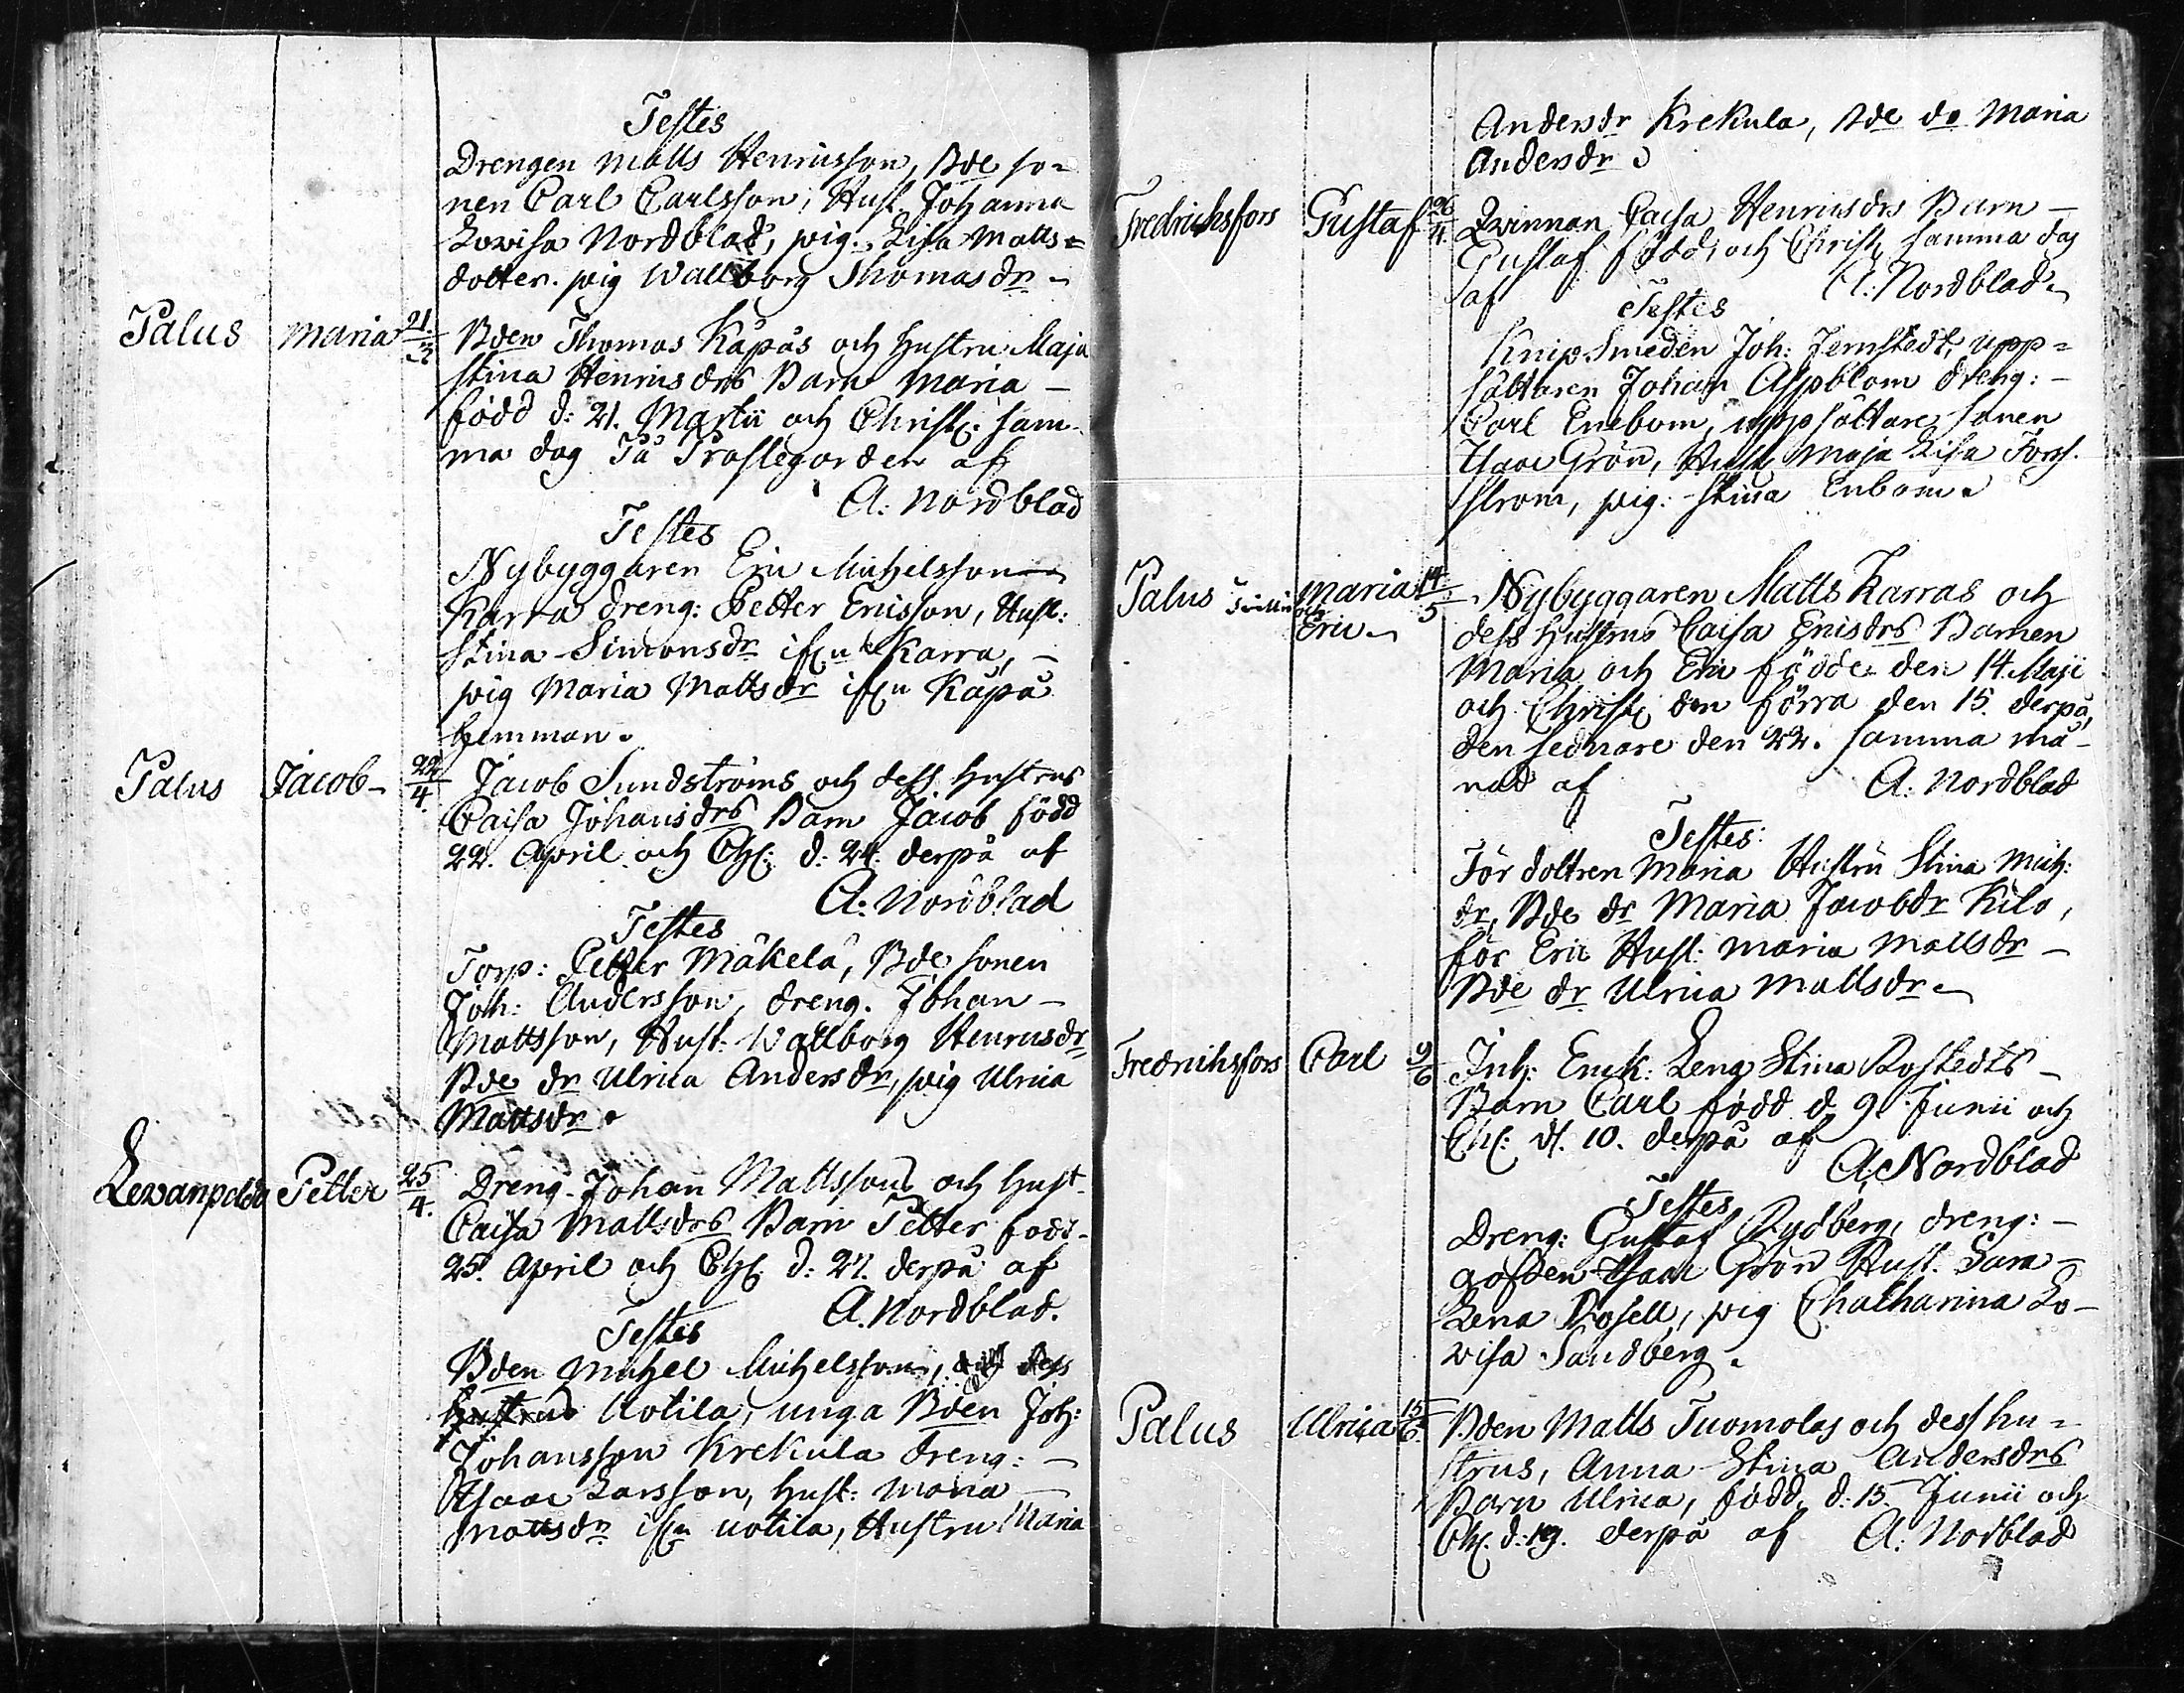 Testes
Drengen Matts Henricsson, Bde so-
nen Carl Carlsson, Hust. Johanna
Lovisa Nordblad, pig. Lisa Matts-
dotter. pig Wallborg Thomasdr
Palus Maria 21/3 Bden Thomas Käpäs och hustru Maja
Stina Henricsdrs Barn Maria
född d: 21. Martii och Christ. sam-
ma dag På Prostegorden af
A: Nordblad
Testes
Nybyggaren Eric Michelsson
Karra dreng: Petter Ericsson, Hust:
Stina Simonsdr ifrn Karra,
pig Maria Mattsdr ifrn Käpä
hemman.
Palus Jacob 22/4. Jacob Sundströms och dess hustrus
Caisa Johansdrs Barn Jacob född
22. April och Chr: d: 24. derpå af
A: Nordblad
Testes
Torp: Petter Mäkelä, Bde sonen
Joh: Andersson, dreng. Johan
Mattsson, Hust: Wallborg Henricsdr,
Bde dr Ulrica Andersdr, pig Ulrica
Mattsdr.
Levanpelda Petter 25/4. Dreng. Johan Mattssons och hust.
Caisa Mattsdrs Barn Petter född
25. April och Chr: d: 27. derpå af
A. Nordblad.
Testes
Bden Michel Michelsson, och dess
hustrus Uotila, unga Bden Joh:
Johansson Krekula dreng:
Isaac Larsson, hust: Maria
Mattsdr ifrn Uotila, Hustru Maria
Andersdr Krekula, Bde dr Maria
Andersdr
Fredrichsfors Gustaf 26/4. Qvinnan Caisa Henricsdrs Barn
Gustaf född och Christ. samma dag
af A: Nordblad
Testes
Knip. Smeden Joh: Jernstedt, upp-
sättaren Johan Aspblom dreng:
Carl Enebom, uppsättare sonen
Isaac Grön, Hust. Maja Lisa Fors-
strom, pig: Stina Enbom.
Palus Tvillin Maria och Eric 14/5 Nybyggaren Matts Karras och
dess hustrus Caisa Ericsdrs Barnen
Maria och Eric födde den 14. Maji
och Christ den förra den 15. derpå,
den sednare den 22. samma må-
nad af A: Nordblad
Testes:
För doltren Maria Hustru Stina Mich:
dr, Bde dr Maria Jacobdr Kilo,
för Eric Hust: Maria Mattsdr
Bde dr Ulrica Mattsdr
Fredrichsfors Carl 9/6 Inh: Enck: Lena Stina Rostedts
Barn Carl född d 9 Junii och
Chr: d. 10. derpå af
A: Nordblad
Testes
Dreng: Gustaf Rydberg, dreng:
gossen Isaac Grön Hust. Sara
Lena Rosell, pig Chatharina Lo-
visa Sandberg.
Palus Ulrica 15/6. Bden Matts Tuomolas och dess hu-
strus, Anna Stina Andersdrs
Barn Ulrica, född d: 15. Junii och
Chr. d: 19. derpå af A: Nordblad